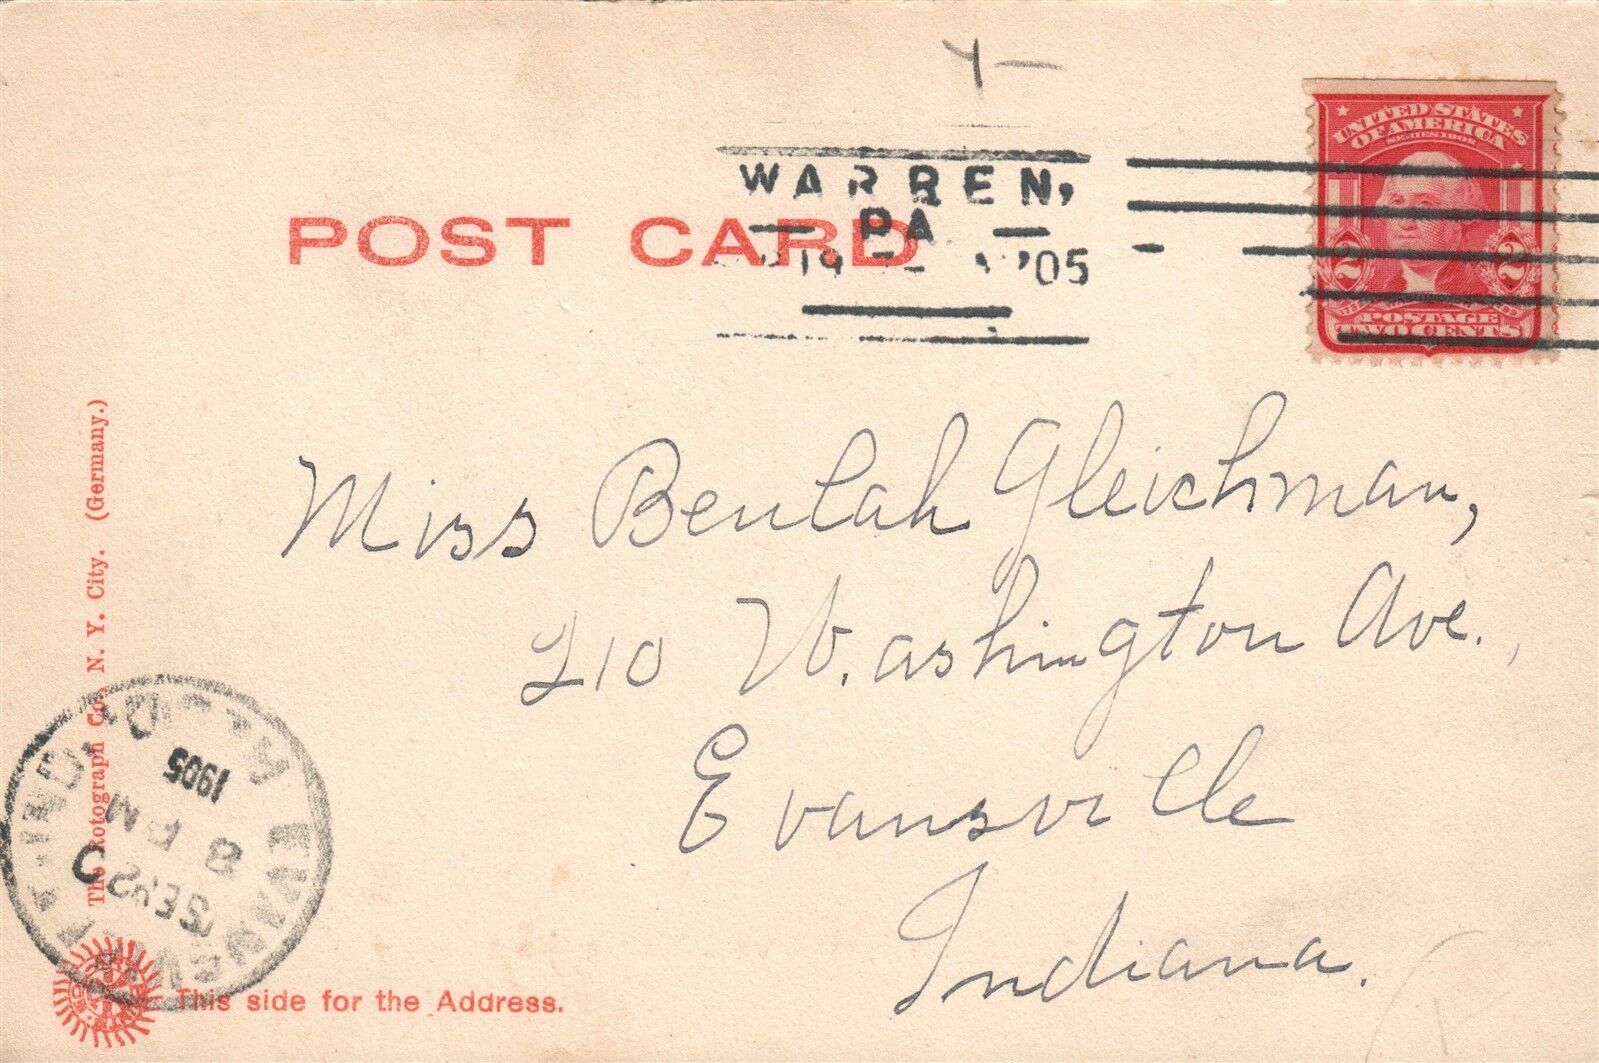 Y—
WARREN,
PA
19 '05
POST CARD
UNITED STATES
OF AMERICA
SERIES 1902
2 2
POSTAGE
TWO CENTS
Miss Beulah Gleichman,
210 Washington Ave.,
Evansville
Indiana.
The Rotograph Co., N. Y. City. (Germany.)
EVANSVILLE, IND.
SEP 20
8 PM
1905
This side for the Address.